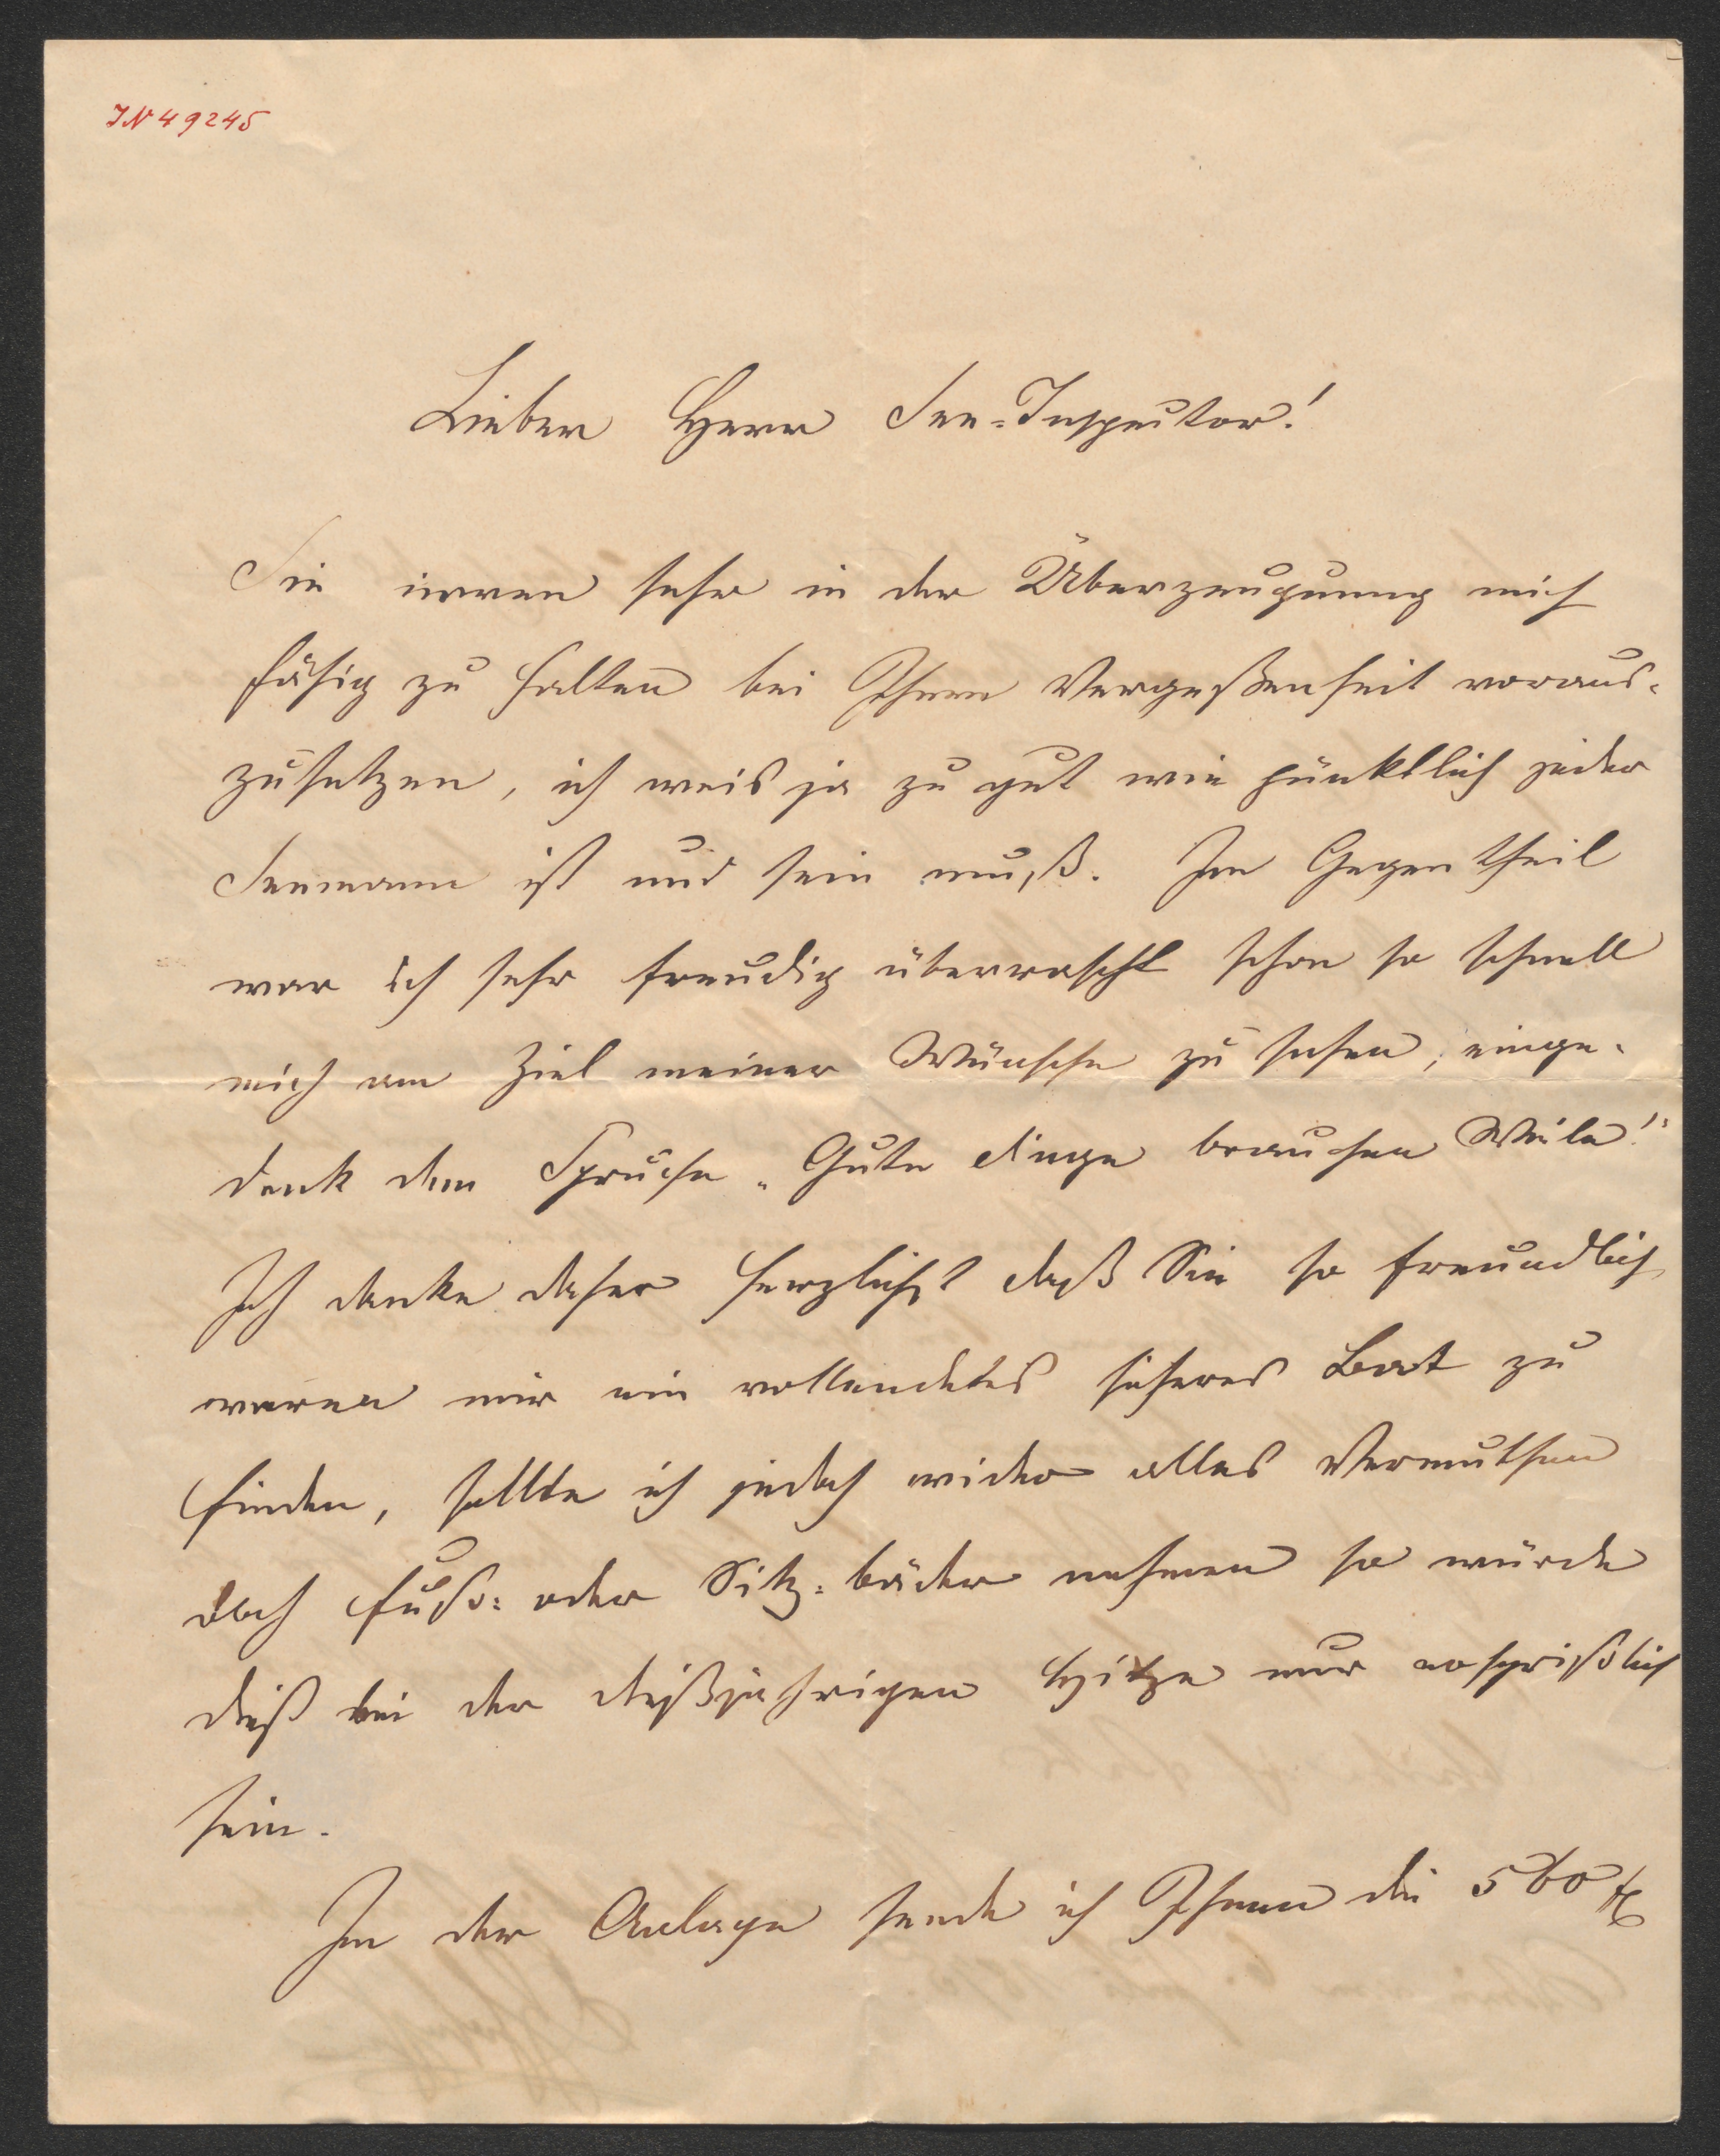 IN 49245
Lieber Herr See-Inspector!
Sie irren sehr in der Überzeugung mich
fähig zu halten bei Ihnen Vergeßenheit voraus-
zusetzen, ich weis ja zu gut wie pünktlich jeder
Seemann ist und sein muß. Im Gegentheil
war ich sehr freudig überrascht schon so schnell
mich am Ziel meiner Wünsche zu sehen, einge-
denk dem Spruche „Gute dinge brauchen Weile!"
Ich danke daher herzlichst daß Sie so freundlich
waren mir ein vollendetes sicheres Boot zu
finden, sollte ich jedoch wider alles Vermuthen
doch Fuß- oder Sitz-bäder nehmen so würde
dieß bei der dießjährigen Hitze nur ersprißlich
sein.
In der Anlage sende ich Ihnen die 560 fl